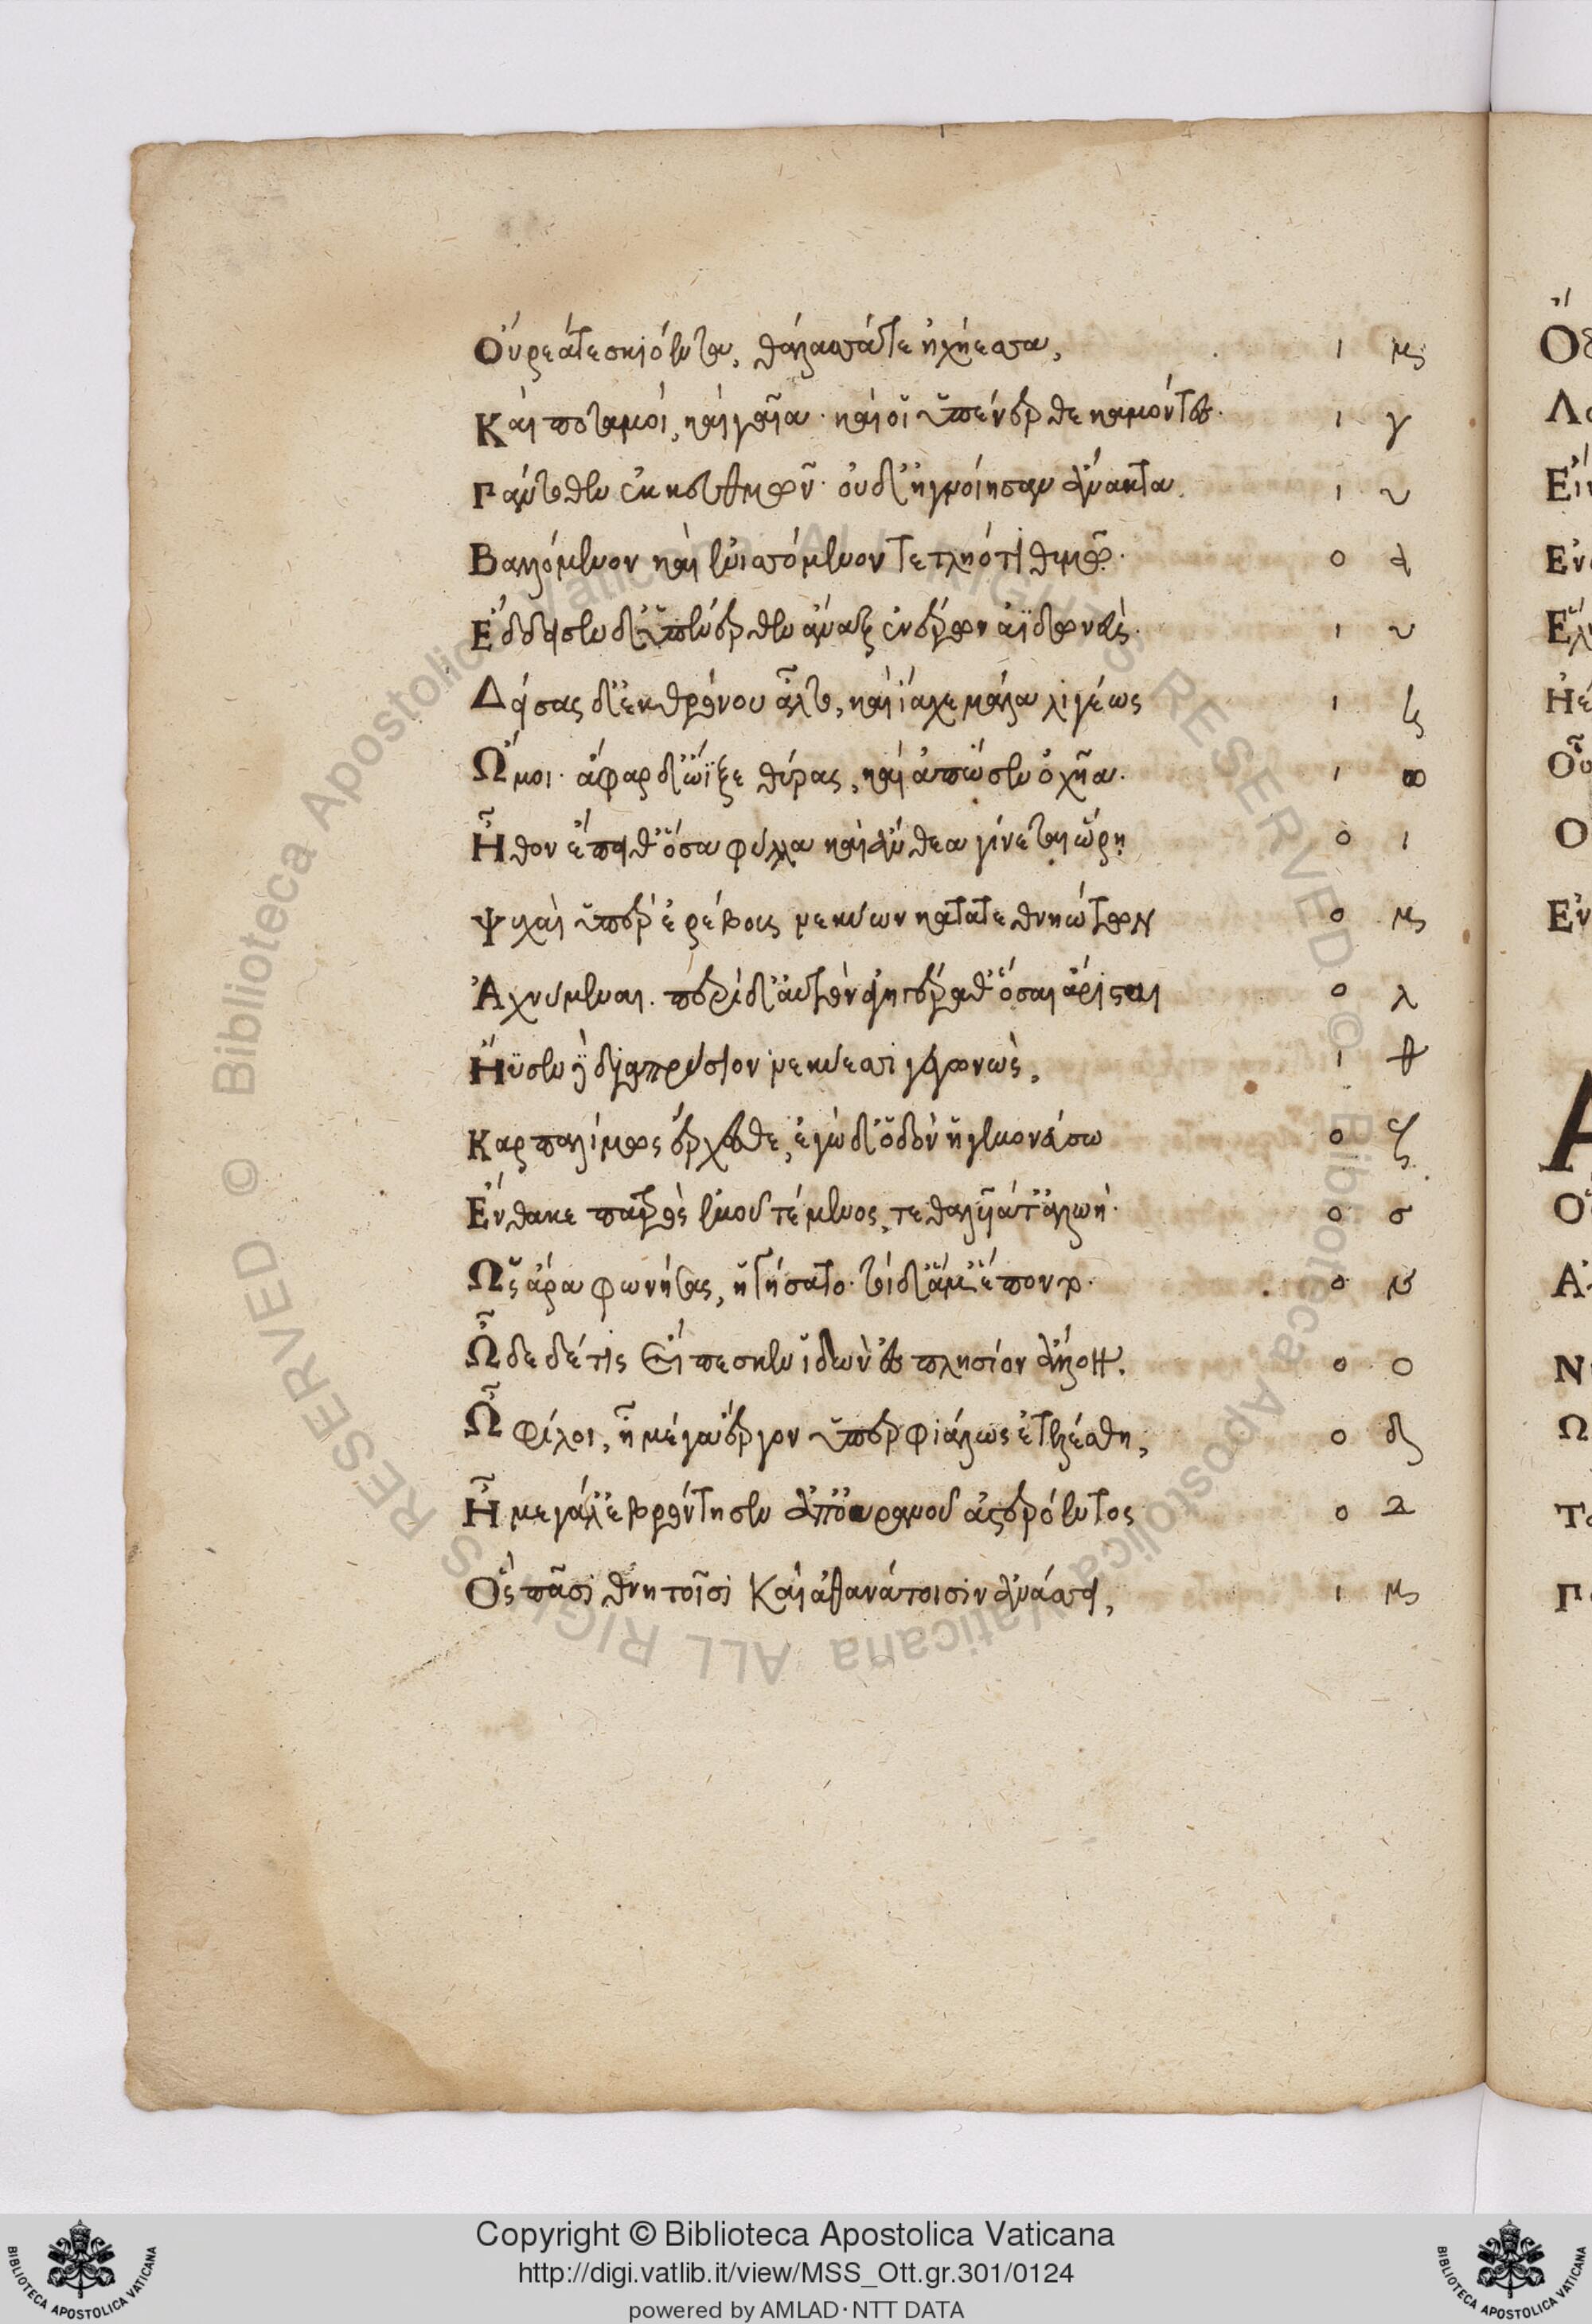 Οὔρεά τε σκιόεντα, θάλασσά τε ἠχήεσσα, ι
Καὶ ποταμοί, καὶ γαῖα· καὶ οἳ ὑπένερθε καμόντες· ι γ
Γαύσθεν ἐκ κευθμῶν· οὐδ' ἠγνοίησαν ἄνακτα ι υ
Βαλλόμενον καὶ ἐνισσόμενον τετληότι θυμῷ· ο δ
Ἔδδεισεν δ' ὑπένερθεν ἄναξ ἐνέρων ἀϊδωνεὺς· ι υ
Δείσας δ' ἐκ θρόνου ἆλτο, καὶ ἴαχε μάλα λιγέως ι
Ὤμοι· ἄφαρ δ' ὤϊξε θύρας, καὶ ἀπῶσεν ὀχῆα· ι ω
Ἦλθον ἔπειθ' ὅσα φύλλα καὶ ἄνθεα γίνεται ὥρῃ ο ι
Ψυχαὶ ὑπὲρ ἐρέβους νεκύων κατατεθνηώτων ο
Ἀχνύμεναι. περὶ δ' αὐτὸν ἀγηγέραθ' ὅσσαι ἄρισται ο λ
Ἤϋσεν δὲ διαπρύσιον νεκύεσσι γεγωνὼς, ι
Καρπαλίμως ἔρχεσθε, ἐγὼ δ' ὁδὸν ἡγεμονεύσω ο ζ
Ἔνθα κε πατρὸς ἐμοῦ τέμενος, τεθαλυῖά τ' ἀλωή· ο σ
Ὣς ἄρα φωνήσας, ἡγήσατο· τοὶ δ' ἅμ' ἕποντο· ο
Ὧδε δέ τις εἴπεσκεν ἰδὼν ἐς πλησίον ἄλλον. ο ο
Ὦ φίλοι, ἦ μέγα ἔργον ὑπερφιάλως ἐτελέσθη, ο
Ἦ μεγάλ' ἐβρόντησεν ἀπ' οὐρανοῦ ἀστερόεντος ο
Ὃς πᾶσι θνητοῖσι καὶ ἀθανάτοισιν ἀνάσσει, ι
Copyright © Biblioteca Apostolica Vaticana
http://digi.vatlib.it/view/MSS_Ott.gr.301/0124
powered by AMLAD·NTT DATA